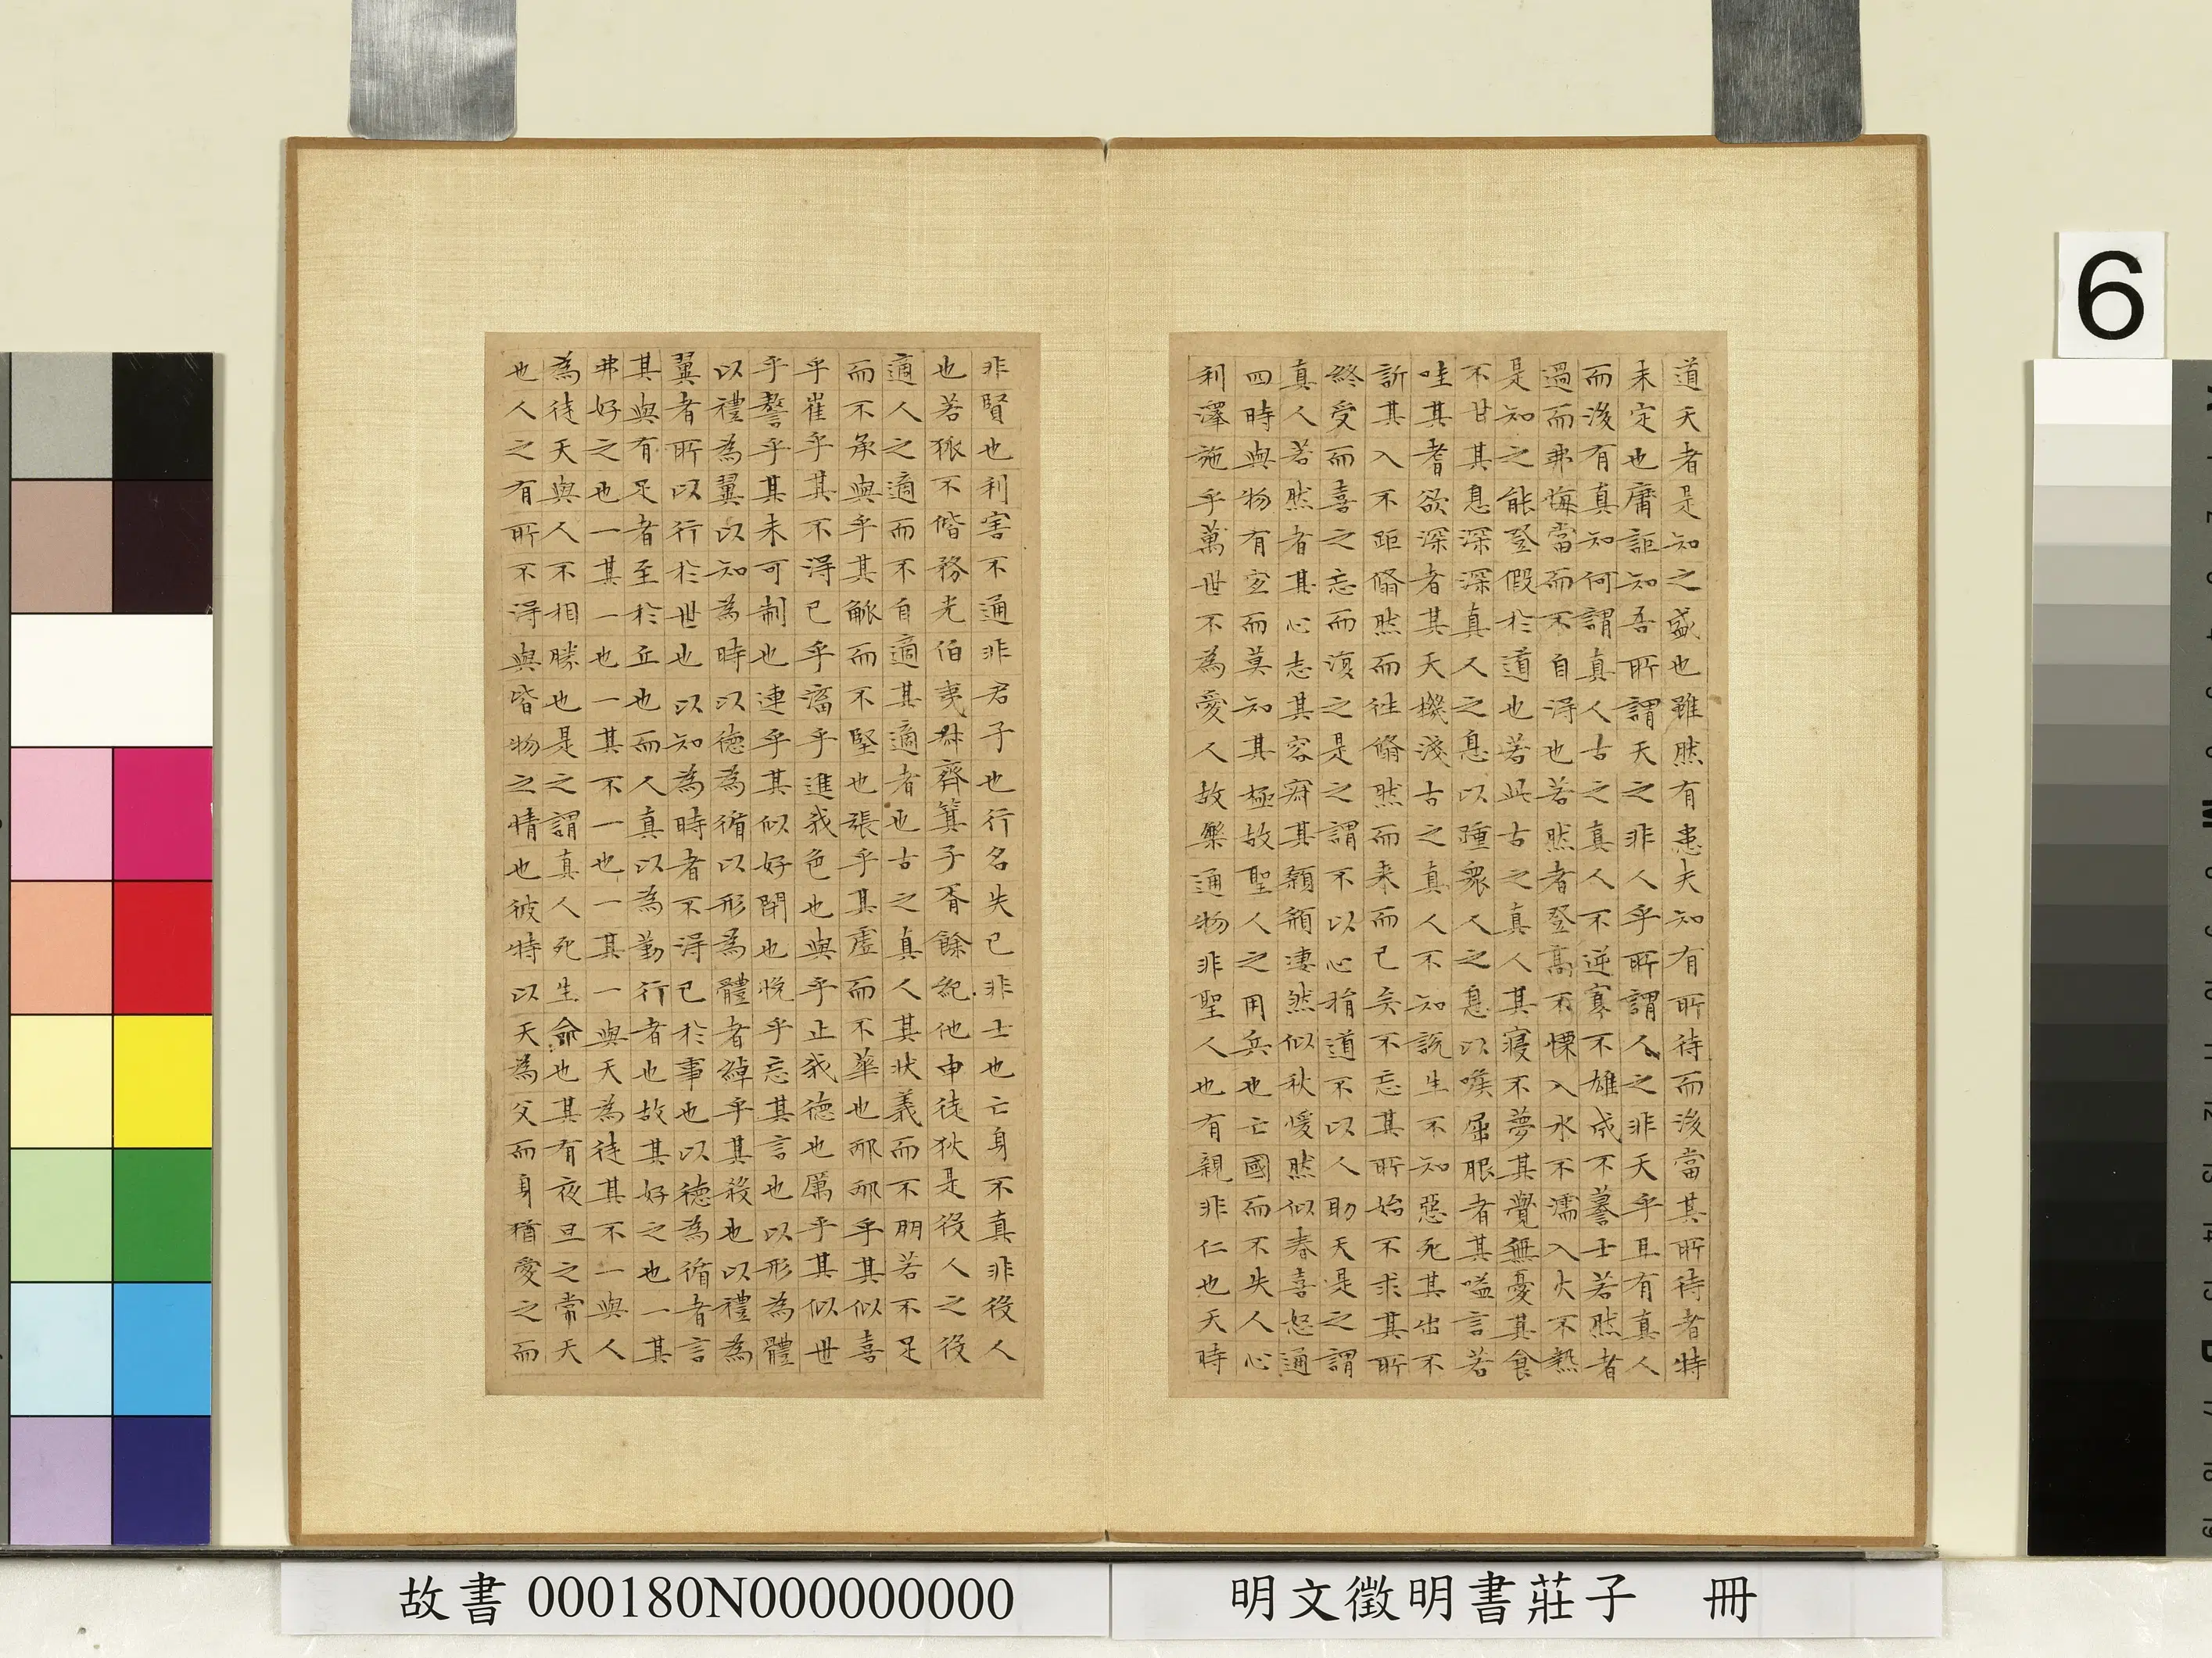 道天者是知之盛也雖然有患夫知有所待而後當其所待者特
未定也庸詎知吾所謂天之非人乎所謂人之非天乎且有真人
而後有真知何謂真人古之真人不逆寡不雄成不謩士若然者
過而弗悔當而不自得也若然者登高不慄入水不濡入火不熱
是知之能登假於道也若此古之真人其寢不夢其覺無憂其食
不甘其息深深真人之息以踵衆人之息以喉屈服者其嗌言若
哇其耆欲深者其天機淺古之真人不知說生不知惡死其出不
訢其入不距翛然而往翛然而来而已矣不忘其所始不求其所
終受而喜之忘而復之是之謂不以心捐道不以人助天是之謂
真人若然者其心志其容寂其顙頯淒然似秋煖然似春喜怒通
四時與物有宜而莫知其極故聖人之用兵也亡國而不失人心
利澤施乎萬世不為愛人故樂通物非聖人也有親非仁也天時
非賢也利害不通非君子也行名失己非士也亡身不真非役人
也若狐不偕務光伯夷叔齊箕子胥餘紀他申徒狄是役人之役
適人之適而不自適其適者也古之真人其狀義而不朋若不足
而不承與乎其觚而不堅也張乎其虛而不華也邴邴乎其似喜
乎崔乎其不得已乎滀乎進我色也與乎止我德也厲乎其似世
乎謷乎其未可制也連乎其似好閉也悅乎忘其言也以形為體
以禮為翼以知為時以德為循以形為體者綽乎其殺也以禮為
翼者所以行於世也以知為時者不得已於事也以德為循者言
其與有足者至於丘也而人真以為勤行者也故其好之也一其
弗好之也一其一也一其不一也一其一與天為徒其不一與人
為徒天與人不相勝也是之謂真人死生命也其有夜旦之常天
也人之有所不得與皆物之情也彼特以天為父而身猶愛之而
6
明文徵明書莊子 冊
故書000180N000000000